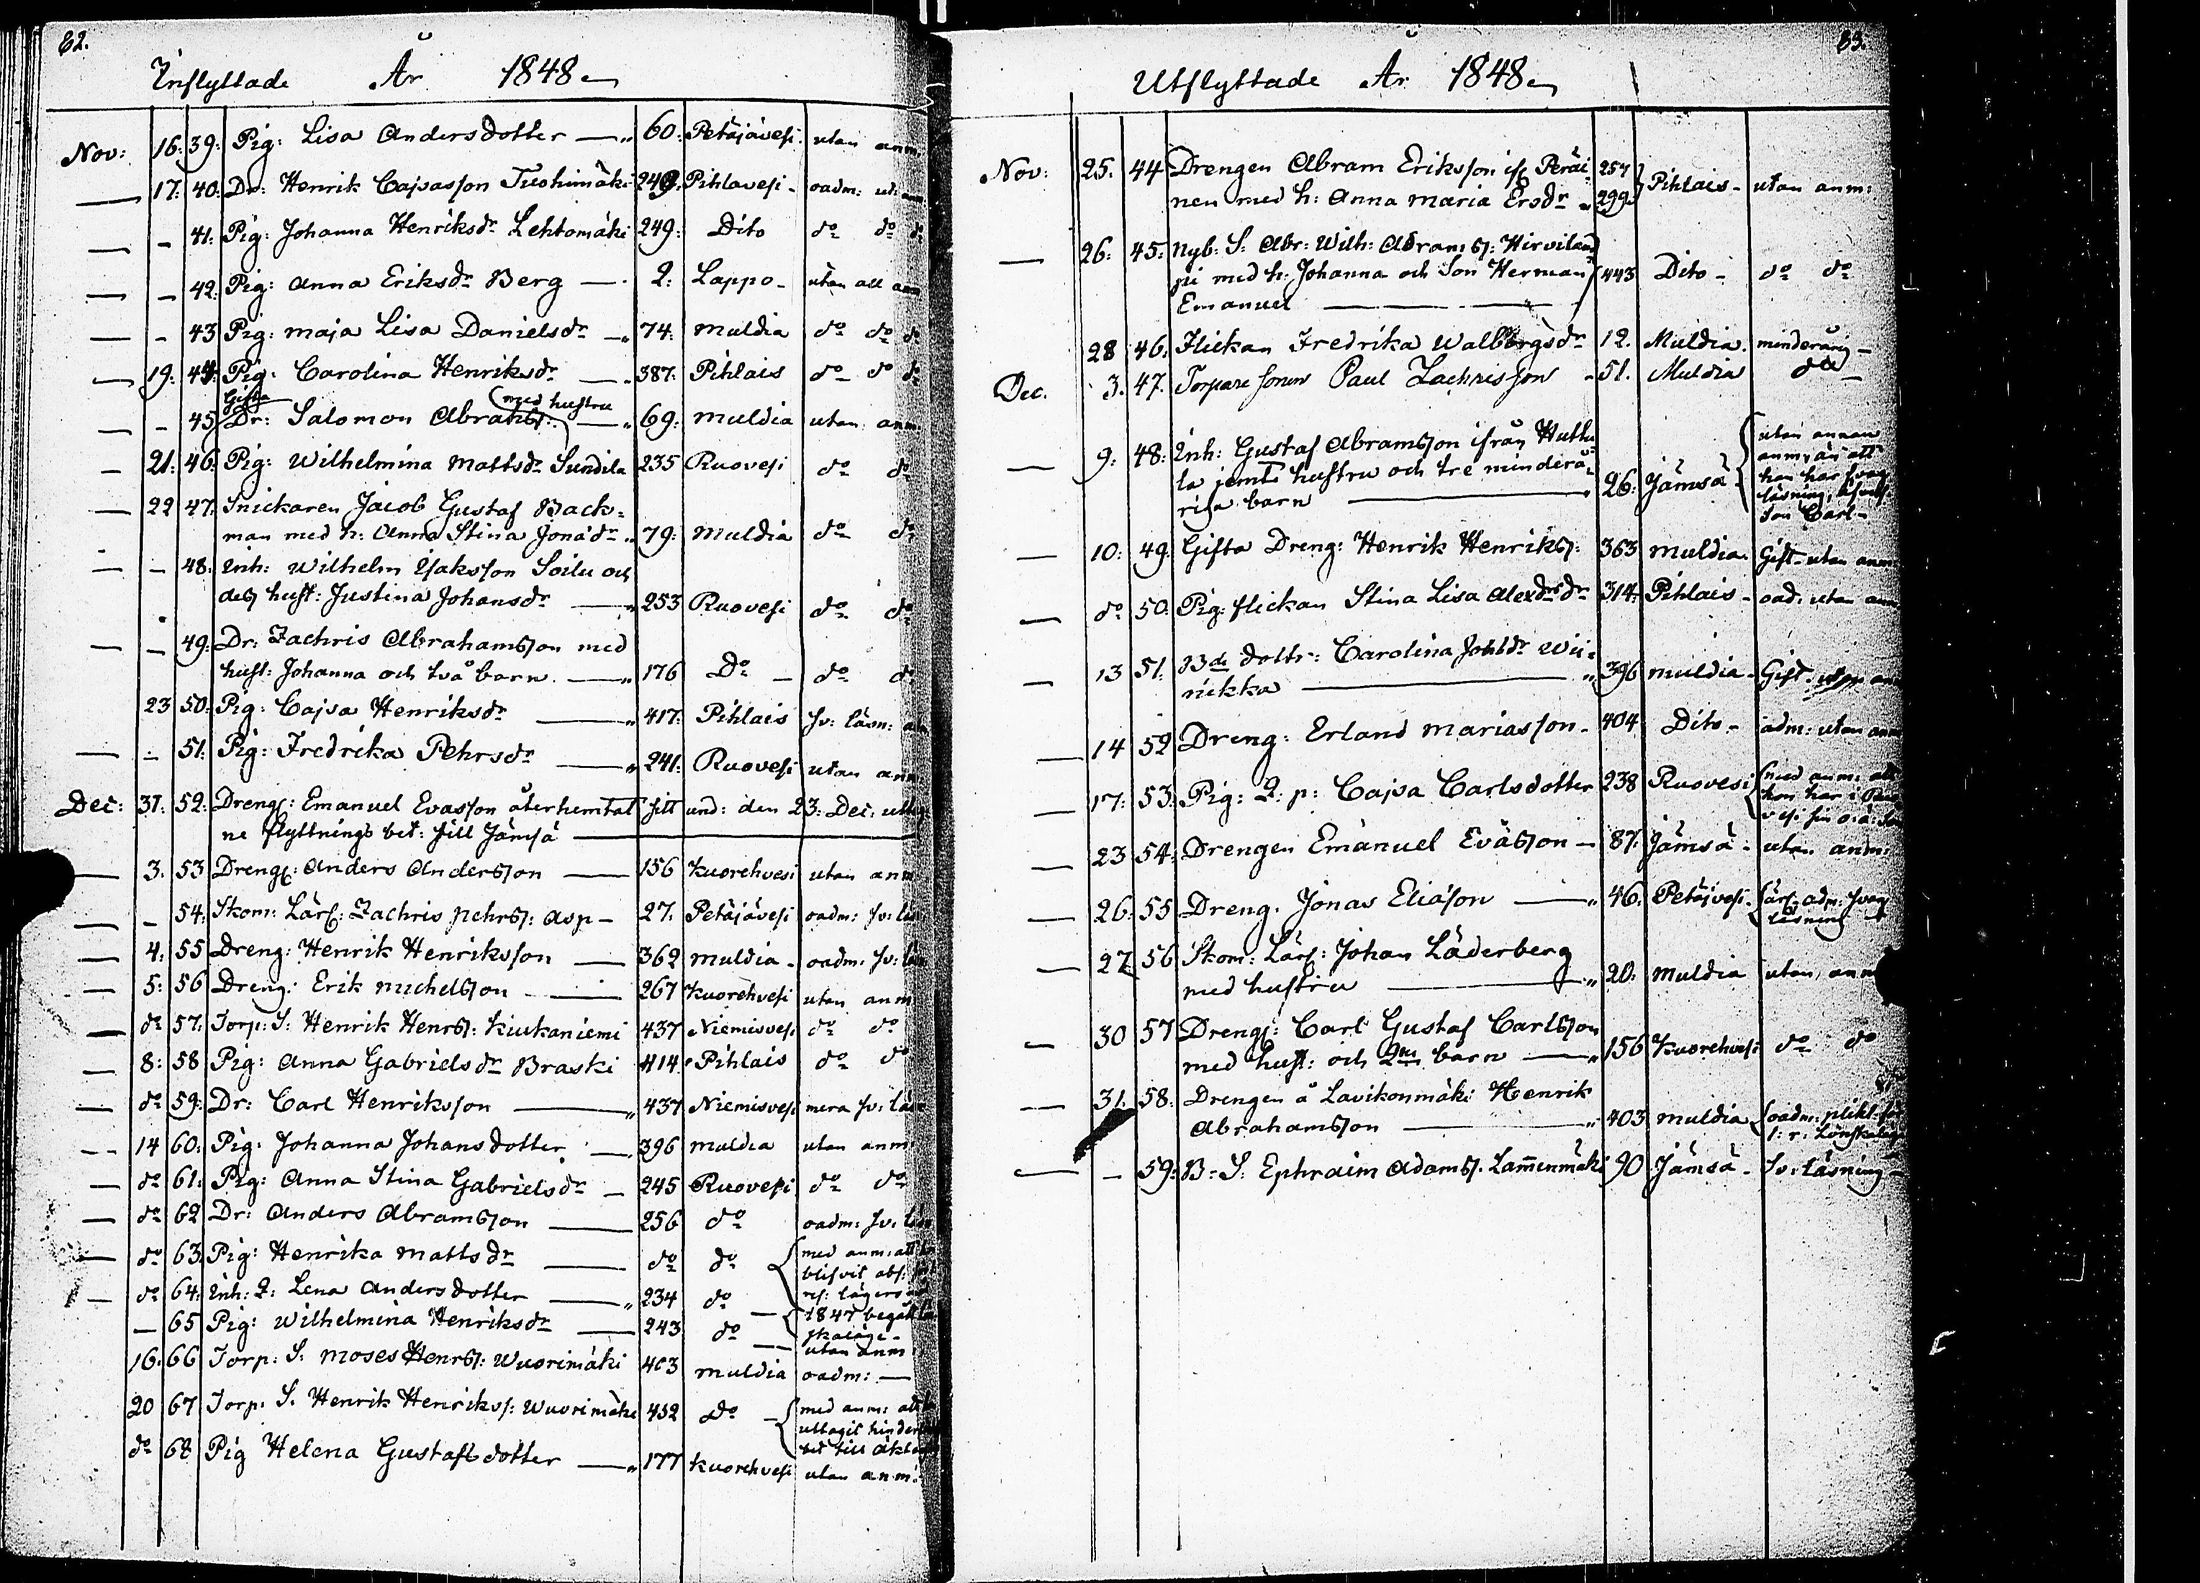 62.
Inflyttade År 1848
Nov: 16. 39: Pig: Lisa Andersdotter — 60: Petäjävesi. utan anm.
17: 40: Dr: Henrik Cajsasson 249. Pihlavesi - oadm: ut: anm
— 41: Pig: Johanna Henriksdr Lehtomäki 249: Dito do do do
— 42: Pig: Anna Eriksdr Berg — 2: Lappo - utan all anm
— 43 Pig: Maja Lisa Danielsdr — 74: Muldia do do do
19: 44: Pig: Carolina Henriksdr — 387: Pihlais do do do
Gifta
— 45 Dr: Salomon Abrahs: (med hustru — 69: Muldia utan anm
21: 46: Pig: Wilhelmina Mattsdr Sundila 235 Ruovesi do do
22 47. Snickaren Jacob Gustaf Back=
man med h: Anna Stina Jonädr 79: Muldia do do
— 48: Inh: Wilhelm Isaksson Soilu och
dess hust: Justina Johansdr — 253 Ruovesi do do
— 49: Dr: Zachris Abrahamsson med
hust: Johanna och två barn. — 176 Do - do do
23 50: Pig: Cajsa Henriksdr — 417: Pihlais sv: läsn:
— 51: Pig: Fredrika Pehrsdr — 241: Ruovesi utan anm:
Dec: 31. 52: Drengs: Emanuel Evasson återhemtat sitt und: den 23: Dec: uttag
ne flyttnings bet: till Jämsä
3. 53 Drengs: Anders Andersson — 156 Kuorehvesi utan anm
— 54: Skom: Lärl: Zachris Pehrss: Asp - 27. Petäjävesi oadm: sv: läs
4: 55 Dreng: Henrik Henriksson — 362 Muldia - oadm: sv: läs
5: 56 Dreng: Erik Michelsson — 267 Kuorehvesi utan anm
do 57: Torp: S: Henrik Henrss: Kiukaniemi 437 Niemisves. do do
8: 58 Pig: Anna Gabrielsdr Braski 414 Pihlais do do
do 59: Dr: Carl Henriksson — 437 Niemisvesi mera sv: läs
14 60: Pig: Johanna Johansdotter — 396 Muldia utan anm:
do 61: Pig: Anna Stina Gabrielsdr — 245 Ruovesi do do
do 62 Dr: Anders Abramsson — 256 do oadm: sv: läs
do 63. Pig: Henrika Mattsdr — do do { med anm: att
blifvit abs:
do 64: Inh: Q: Lena Andersdotter — 234 do - { lägers
1847 begått
— 65 Pig: Wilhelmina Henriksdr — 243 do — utan anm
16. 66 Torp: S: Moses Henrss: Wuorimäki 403 Muldia oadm: —
20 67 Torp: S. Henrik Henriks: Wuorimäki 432 Do - { med anm: att
uttagit hinders
bet till äkt
do 68 Pig Helena Gustafsdotter — 177 Kuorehvesi utan anm:
63.
Utflyttade År 1848
Nov: 25. 44 Drengen Abram Eriksson ifr Peräi= 257
nen med h: Anna Maria Ersdr 299. } Pihlais - utan anm:
26: 45: Nyb: S: Abr: Wilh: Abrams: Hirvilam
pi med h: Johanna och Son Herman 443 Dito - do do
Emanuel
28 46. Flickan Fredrika Walborgsdr 12. Muldia. minderårig -
Dec. 3. 47. Torpare sonen Paul Zachrisson - 51. Muldia do
9: 48: Inh: Gustaf Abramsson ifrån Huttu
la jemte hustru och tre minderå=
riga barn — 26: Jämsä - { utan annan
anm: än att
han har svag
läsning,
son Carl -
10: 49: Gifta Dreng: Henrik Henrikss: 363 Muldia. Gift - utan anm
do 50. Pig: flickan Stina Lisa Alexdrsdr 314: Pihlais - oad: utan anm
13 51. Bde dottr: Carolina Johsdr Wii=
nikka — 396 Muldia - Gift.
14 52 Dreng: Erland Mariasson - 404 Dito - adm: utan anm
17: 53: Pig: Q: p: Cajsa Carlsdotter 238 Ruovesi { med anm: att
hon har i
23 54: Drengen Emanuel Evässon — 87. Jämsä - utan anm:
26: 55 Dreng. Jonas Eliäson — 46. Petäjvesi. { oadm: svag
läsning
27 56 Skom: Lärl: Johan Läderberg
med hustru — 20: Muldia utan anm
30 57 Drengs: Carl Gustaf Carlsson
med hust: och 2ne barn — 156 Kuorehvesi do do
31. 58: Drengen å Lavikonmäki Henrik
Abrahamsson — 403 Muldia { oadm: plikt: för
1: r: Lönskaläge
— 59: B: S: Ephraim Adamss. Lam̄enmäki 90 Jämsä - sv: läsning -